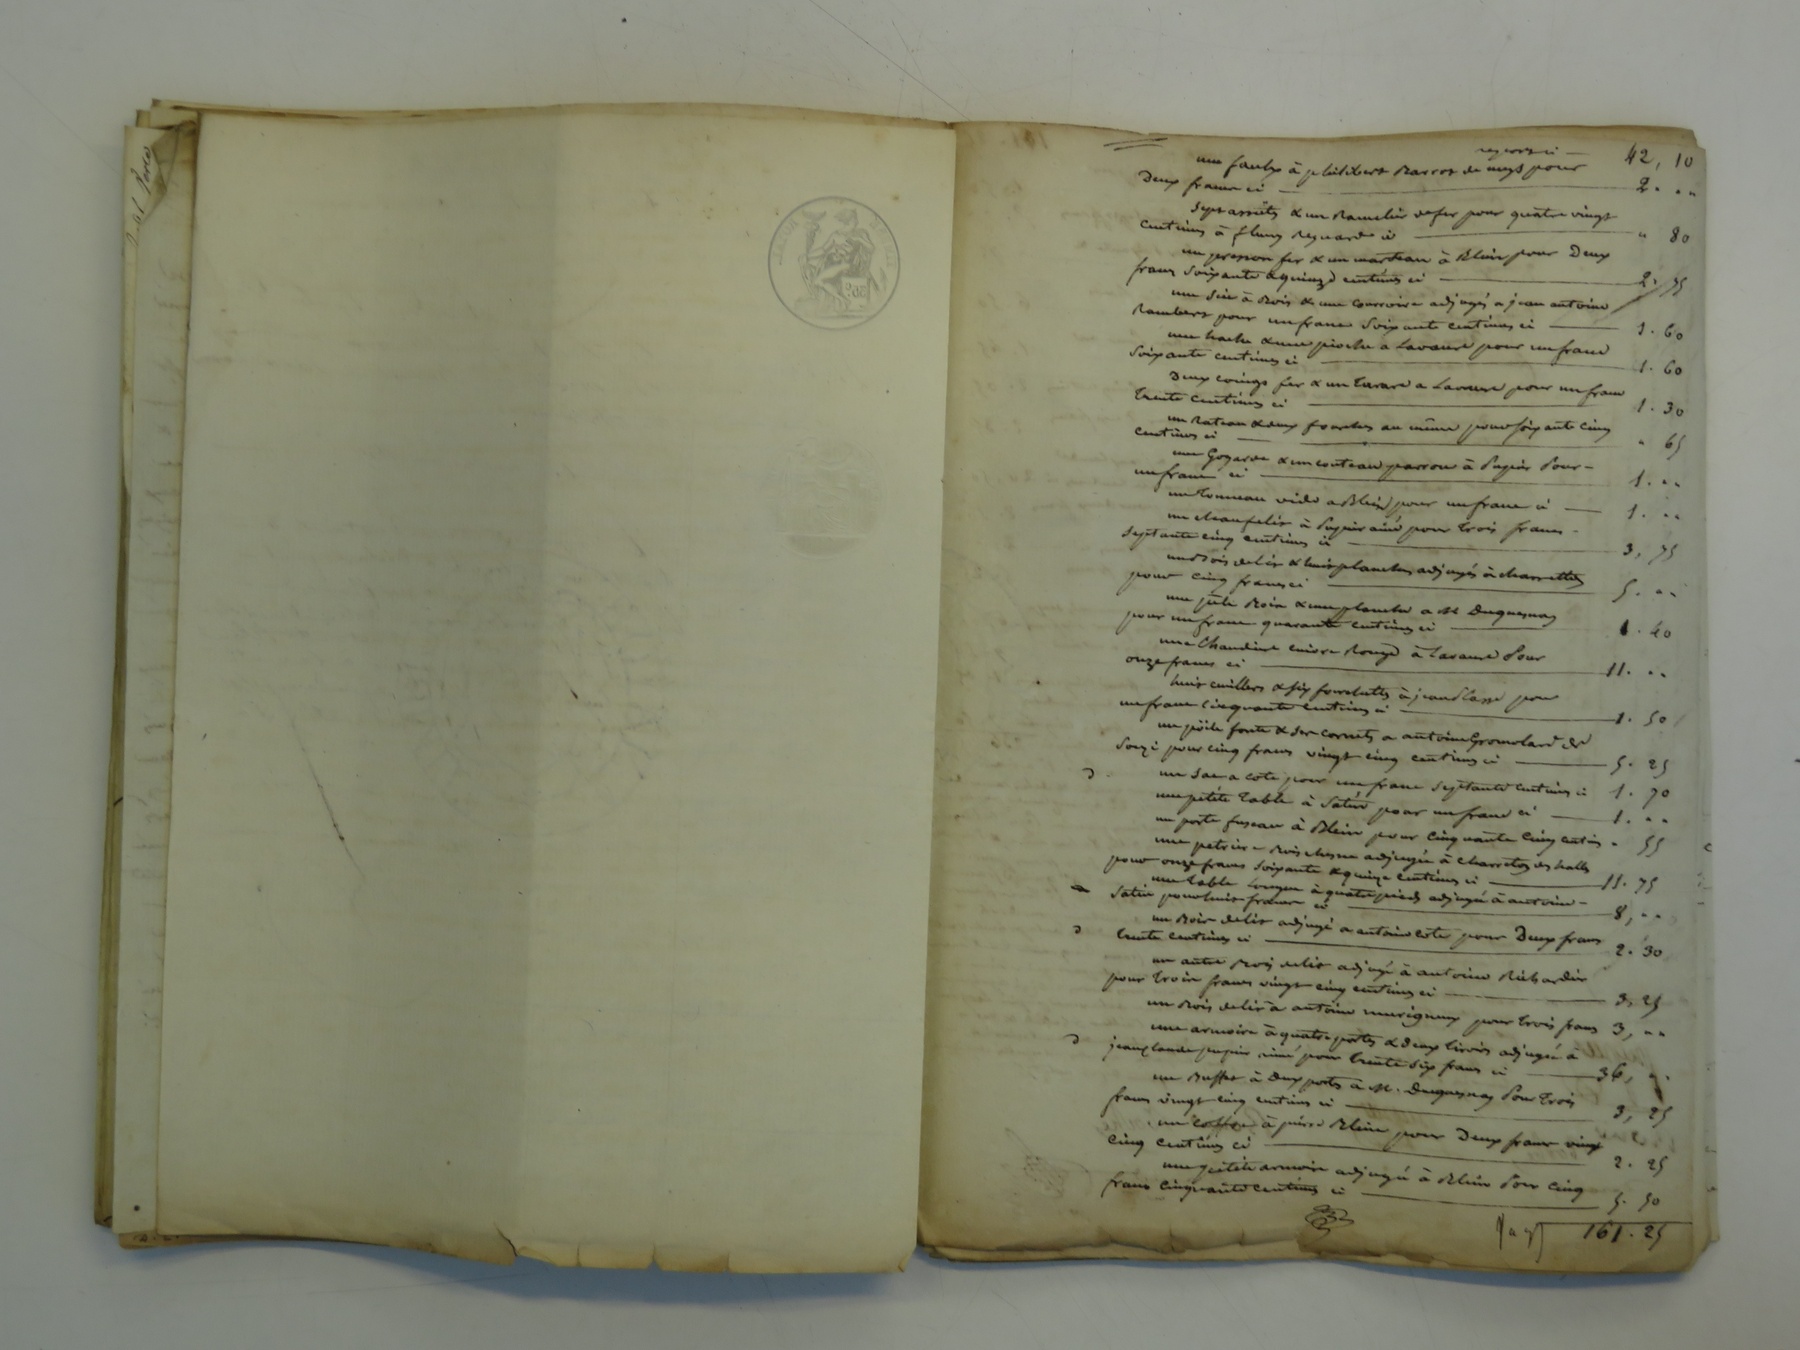 report ci — 42, 10
une faulx à philibert Barrot de meys pour
Deux francs ci — 2. ..
Sept assiettes & un Ramelier de fer pour quatre vingt
centimes à fleury Reynard ci — " 80
un presson fer & un marteau à Blein pour Deux
francs Soixante & quinze centimes ci — 2. 75
une Sie à Bois & une courroire adjugés a jean antoine
Rambert pour un franc Soixante centimes ci — 1. 60
une hache & une pioche a Lavaure pour un franc
Soixante centimes ci — 1. 60
Deux coings fer & un tarare a Lavaure pour un franc
trente centimes ci — 1. 30
un Rateau & deux fourches au même pour soixante cinq
centimes ci — " 65
une Goyarde & un couteau parroir à Pupier Pour
un franc ci — 1. ..
un tonneau vide a Blein pour un franc ci — 1. ..
un à Pupier ainé pour trois francs
Septante cinq centimes ci — 3, 75
un Bois de lit & huit planches adjugés à charretton
pour cinq francs ci — 5. ..
une Bois & une planche a M Duquesnay
pour un franc quarante centimes ci — 1. 40
une Chaudiere cuivre Rouge à Lavaure Pour
onze francs ci — 11. ..
huit cuillers & six fourchettes à jean pour
un franc Cinquante centimes ci — 1. 50
un poële fonte & ses cornets a antoine Gromolard de
Souzi pour cinq francs vingt cinq centimes ci — 5. 25
un Sac a cote pour un franc Septante centimes ci 1. 70
une petite table à Satin pour un franc ci — 1. ..
un porte fuseau à Blein pour Cinquante Cinq centim. " 55
une petriere Bois chesne adjugée à charreton des halles
pour onze francs Soixante & quinze centimes ci — 11. 75
une table longue à quatre pieds adjugée à antoine
Satin pour huit francs ci — 8, ..
un Bois de lit adjugé a antoine cote pour Deux francs
trente centimes ci — 2. 30
un autre Bois de lit adjugé à antoine Richardier
pour trois francs vingt cinq centimes ci — 3, 25
un Bois de lit à antoine murigneux pour trois francs 3, ..
une armoire à quatre portes & deux tiroirs adjugée à
jean claude pupier ainé pour trente six francs ci — 36, ..
un Buffet à deux portes à M. Duquesnay Pour trois
francs vingt cinq centimes ci — 3, 25
un coffre à pierre Blein pour Deux francs vingt
cinq centimes ci — 2. 25
une petite armoire adjugée à Blein Pour cinq
francs Cinquante centimes ci — 5. 50
161. 25